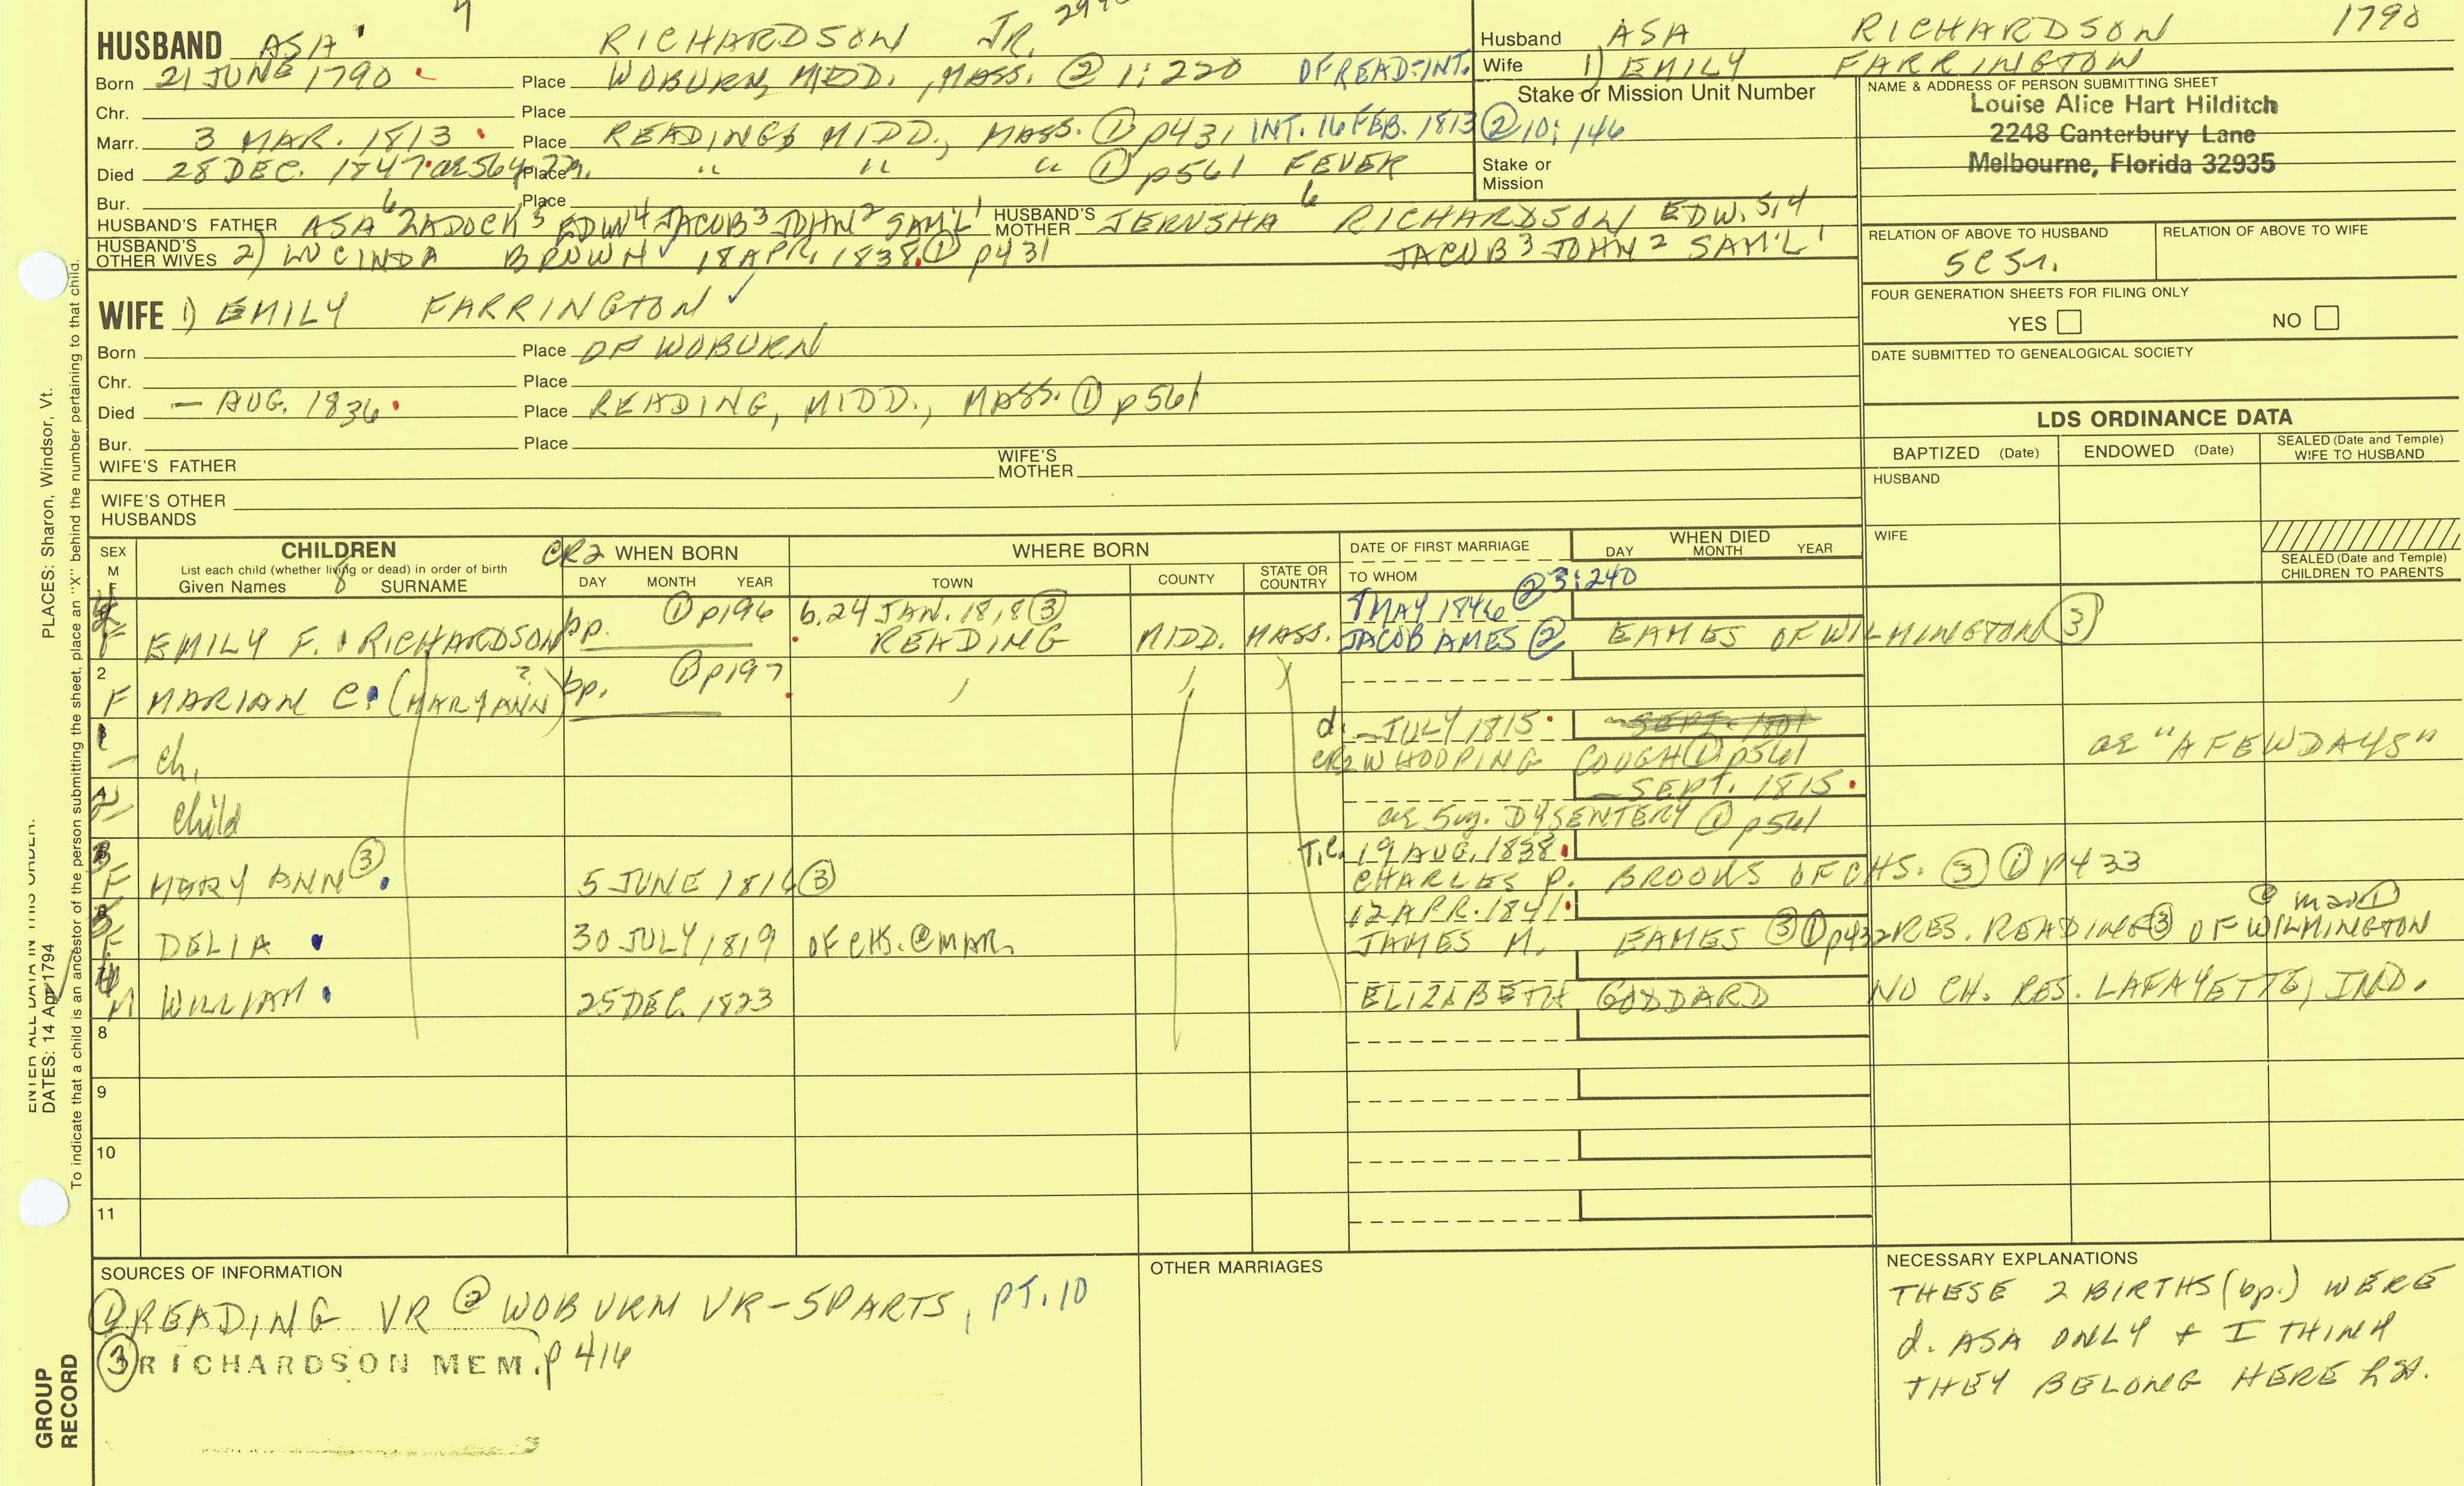 HUSBAND ASA RICHARDSON JR.
Born 21 JUNE 1790 Place WOBURN, MIDD., MASS. ② 1:220 OF READ-INT.
Chr. Place
Marr. 3 MAR. 1813 Place READING MIDD., MASS. ① p431 INT. 16 FEB. 1813 ② 10:146
Died 28 DEC. 1847 Place " " " ① p561 FEVER
Bur. Place
HUSBAND'S FATHER ASA 6 ZADOCK 5 EDW 4 JACOB 3 JOHN 2 SAM'L 1 HUSBAND'S MOTHER JERUSHA 6 RICHARDSON EDW. 5,4
JACOB 3 JOHN 2 SAM'L 1
HUSBAND'S OTHER WIVES 2) LUCINDA BROWN ✓ 18 APR. 1838 ① p431
WIFE 1) EMILY FARRINGTON ✓
Born Place OF WOBURN
Chr. Place
Died — AUG. 1836 Place READING, MIDD., MASS. ① p561
Bur. Place
WIFE'S FATHER WIFE'S MOTHER
WIFE'S OTHER HUSBANDS
Husband ASA RICHARDSON 1790
Wife 1) EMILY FARRINGTON
Stake or Mission Unit Number
Stake or Mission
NAME & ADDRESS OF PERSON SUBMITTING SHEET
Louise Alice Hart Hilditch
2248 Canterbury Lane
Melbourne, Florida 32935
RELATION OF ABOVE TO HUSBAND RELATION OF ABOVE TO WIFE
FOUR GENERATION SHEETS FOR FILING ONLY
YES NO
DATE SUBMITTED TO GENEALOGICAL SOCIETY
LDS ORDINANCE DATA
BAPTIZED (Date) ENDOWED (Date) SEALED (Date and Temple) WIFE TO HUSBAND
HUSBAND
WIFE
SEALED (Date and Temple) CHILDREN TO PARENTS
SEX M F
CHILDREN
List each child (whether living or dead) in order of birth
Given Names 8 SURNAME
CR2 WHEN BORN
DAY MONTH YEAR
WHERE BORN
TOWN COUNTY STATE OR COUNTRY
DATE OF FIRST MARRIAGE
TO WHOM
WHEN DIED
DAY MONTH YEAR
MAY 1846 ② 3:240
F EMILY F. RICHARDSON bp. ① p196 b. 24 JAN. 1818 ③ READING MIDD. MASS. JACOB AMES ② EAMES OF WILMINGTON ③
2 F MARIAM C. (MARY ANN) ? bp. ① p197
ch. d. — JULY 1815 ae "A FEW DAYS"
CR2 WHOOPING COUGH ① p561
child — SEPT. 1815
DYSENTERY ① p561
F MARY ANN ③ 5 JUNE 1816 ③ 19 AUG. 1838
CHARLES P. BROOKS OF CHS. ③ ① p433
F DELIA 30 JULY 1819 OF CHS. @ MAR. 12 APR. 1841
JAMES M. EAMES ③ ① p432 RES. READING ③ OF WILMINGTON @ mar ①
M WILLIAM 25 DEC. 1823 ELIZABETH GODDARD NO CH. RES. LAFAYETTE, IND.
8
9
10
11
SOURCES OF INFORMATION
① READING VR ② WOBURN VR-5 PARTS, PT. 10
③ RICHARDSON MEM. p 416
OTHER MARRIAGES
NECESSARY EXPLANATIONS
THESE 2 BIRTHS (bp.) WERE
d. ASA ONLY & I THINK
THEY BELONG HERE
PLACES: Sharon, Windsor, Vt.
To indicate that a child is an ancestor of the person submitting the sheet, place an "X" behind the number pertaining to that child.
ENTER ALL DATA IN THIS ORDER:
DATES: 14 Apr 1794
GROUP RECORD